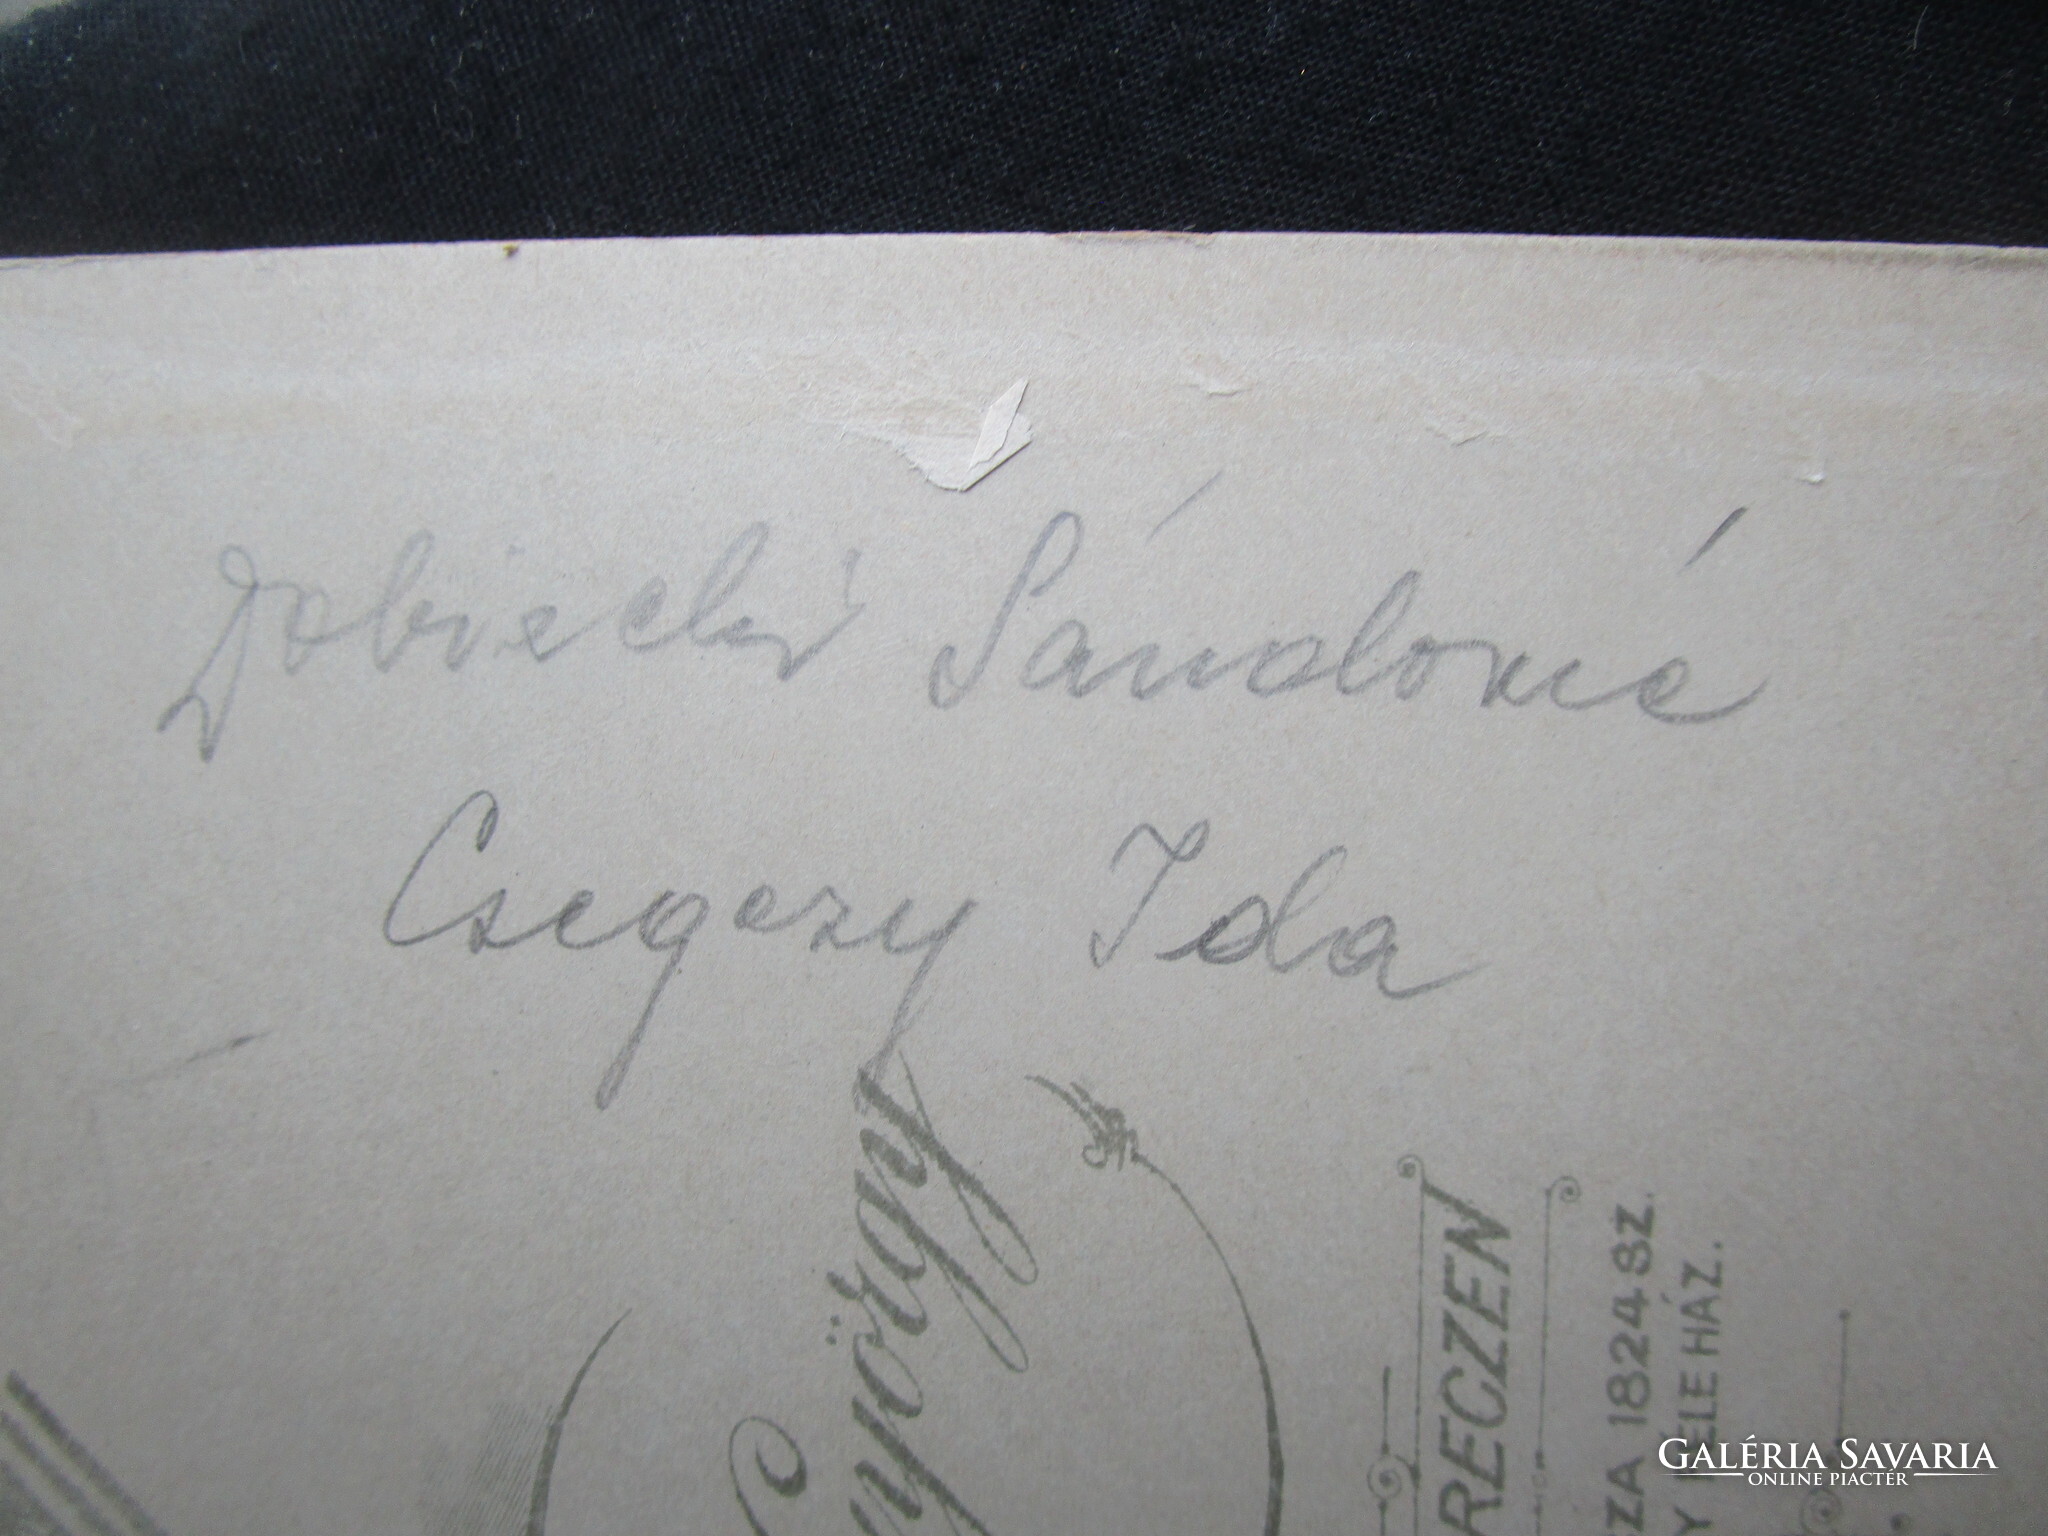 Dobiecki Sándorné
Csegezy Ida
György
RECZEN
ZA 1824 SZ.
Y FÉLE HÁZ.
GALÉRIA SAVARIA
ONLINE PIACTÉR